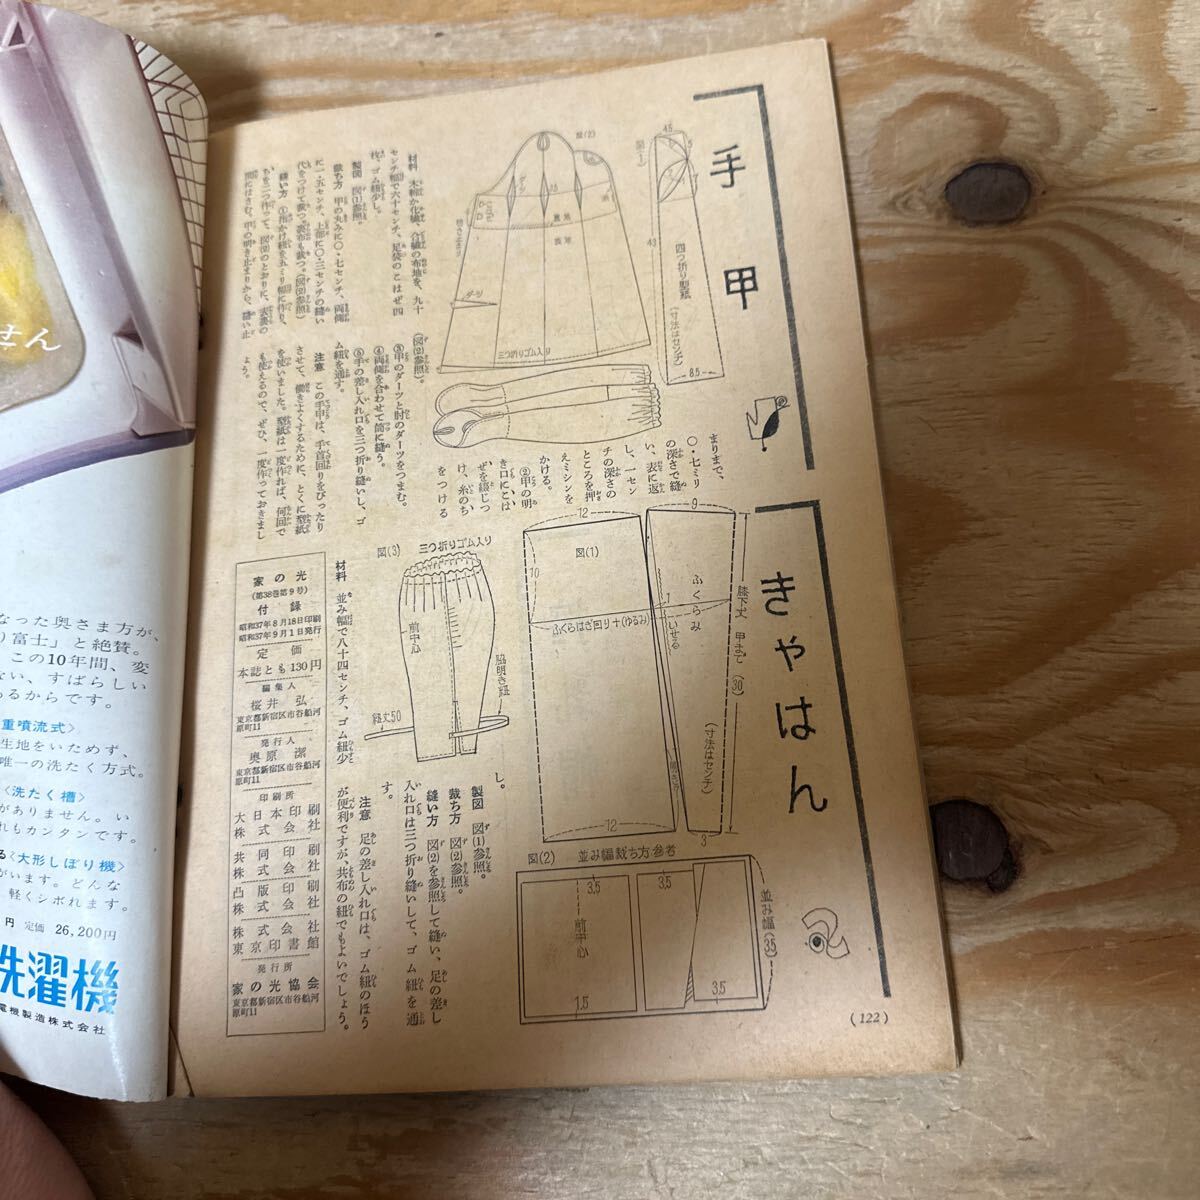 手甲
図(2)
図(1)
45
43
8.5
四つ折り型紙
(寸法はセンチ)
ダーツ
三つ折りゴム入り
材料 木綿か化繊、合繊の布地を、九十
センチ幅で六十センチ、足袋のこはぜ四
枚、ゴム紐少し。
製図 図(1)参照。
裁ち方 甲の丸みに〇・七センチ、両側
に一・五センチ、上部に〇・三センチの縫い
代をつけて裁つ。裏布も裁つ。(図(2)参照)
縫い方 ①指かけ紐を五ミリ幅に作り、
まりまで、
〇・七ミリ
の深さで縫
い、表に返
し、一セン
チの深さの
ところを押
えミシンを
かける。
②甲の明
き口にこは
ぜを綴じつ
け、糸のち
をつける
(図(2)参照)。
③甲のダーツと肘のダーツをつまむ。
④両側を合わせて筒に縫う。
⑤手の差し入れ口を三つ折り縫いし、ゴ
ム紐を通す。
注意 この手甲は、手首回りをぴったり
させて、働きよくするために、とくに型紙
を使いました。型紙は一度作れば、何回で
も使えるので、ぜひ、一度作っておきまし
ょう。
きゃはん
12
9
図(1)
10
ふくらみ
1
いせる
ふくらはぎ回り+(ゆるみ)
膝下丈 甲まで (30)
(寸法はセンチ)
12
3
図(2) 並み幅裁ち方参考
3.5
3.5
前中心
1.5
3.5
並み幅(35)
図(3) 三つ折りゴム入り
前中心
脇明き紐
紐丈50
材料 並み幅で八十四センチ、ゴム紐少
し。
製図 図(1)参照。
裁ち方 図(2)参照。
縫い方 図(2)を参照して縫い、足の差し
入れ口は三つ折り縫いして、ゴム紐を通
す。
注意 足の差し入れ口は、ゴム紐のほう
が便利ですが、共布の紐でもよいでしょう。
家の光
(第38巻第9号)
付録
昭和37年8月18日印刷
昭和37年9月1日発行
定価
本誌とも130円
編集人
桜井弘
東京都新宿区市谷船河
原町11
発行人
奥原潔
東京都新宿区市谷船河
原町11
印刷所
大日本印刷
株式会社
共同印刷
株式会社
凸版印刷
株式会社
株式会社
東京印書館
発行所
家の光協会
東京都新宿区市谷船河
原町11
(122)
せん
なった奥さま方が、
り富士」と絶賛。
この10年間、変
ない、すばらしい
あるからです。
重噴流式〉
生地をいためず、
唯一の洗たく方式。
〈洗たく槽〉
がありません。い
れもカンタンです。
る〈大形しぼり機〉
がいます。どんな
軽くシボれます。
円 定価 26,200円
洗濯機
電機製造株式会社